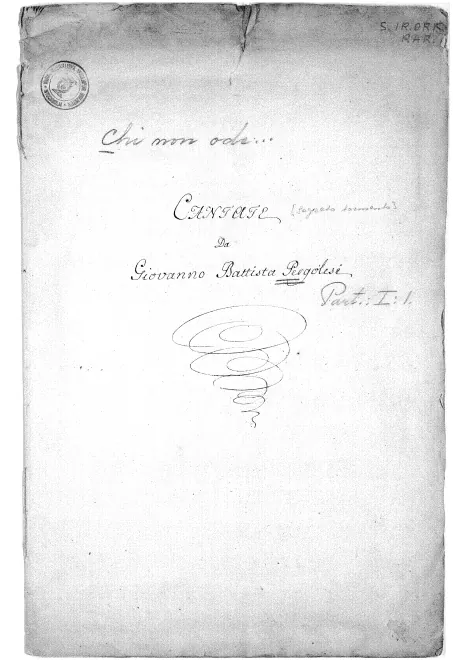 S. IR. ORR.
RAR.
Chi non ode...
CANTATE [Segreto tormento]
Da
Giovanno Battista Pergolese
Part.: I: 1.